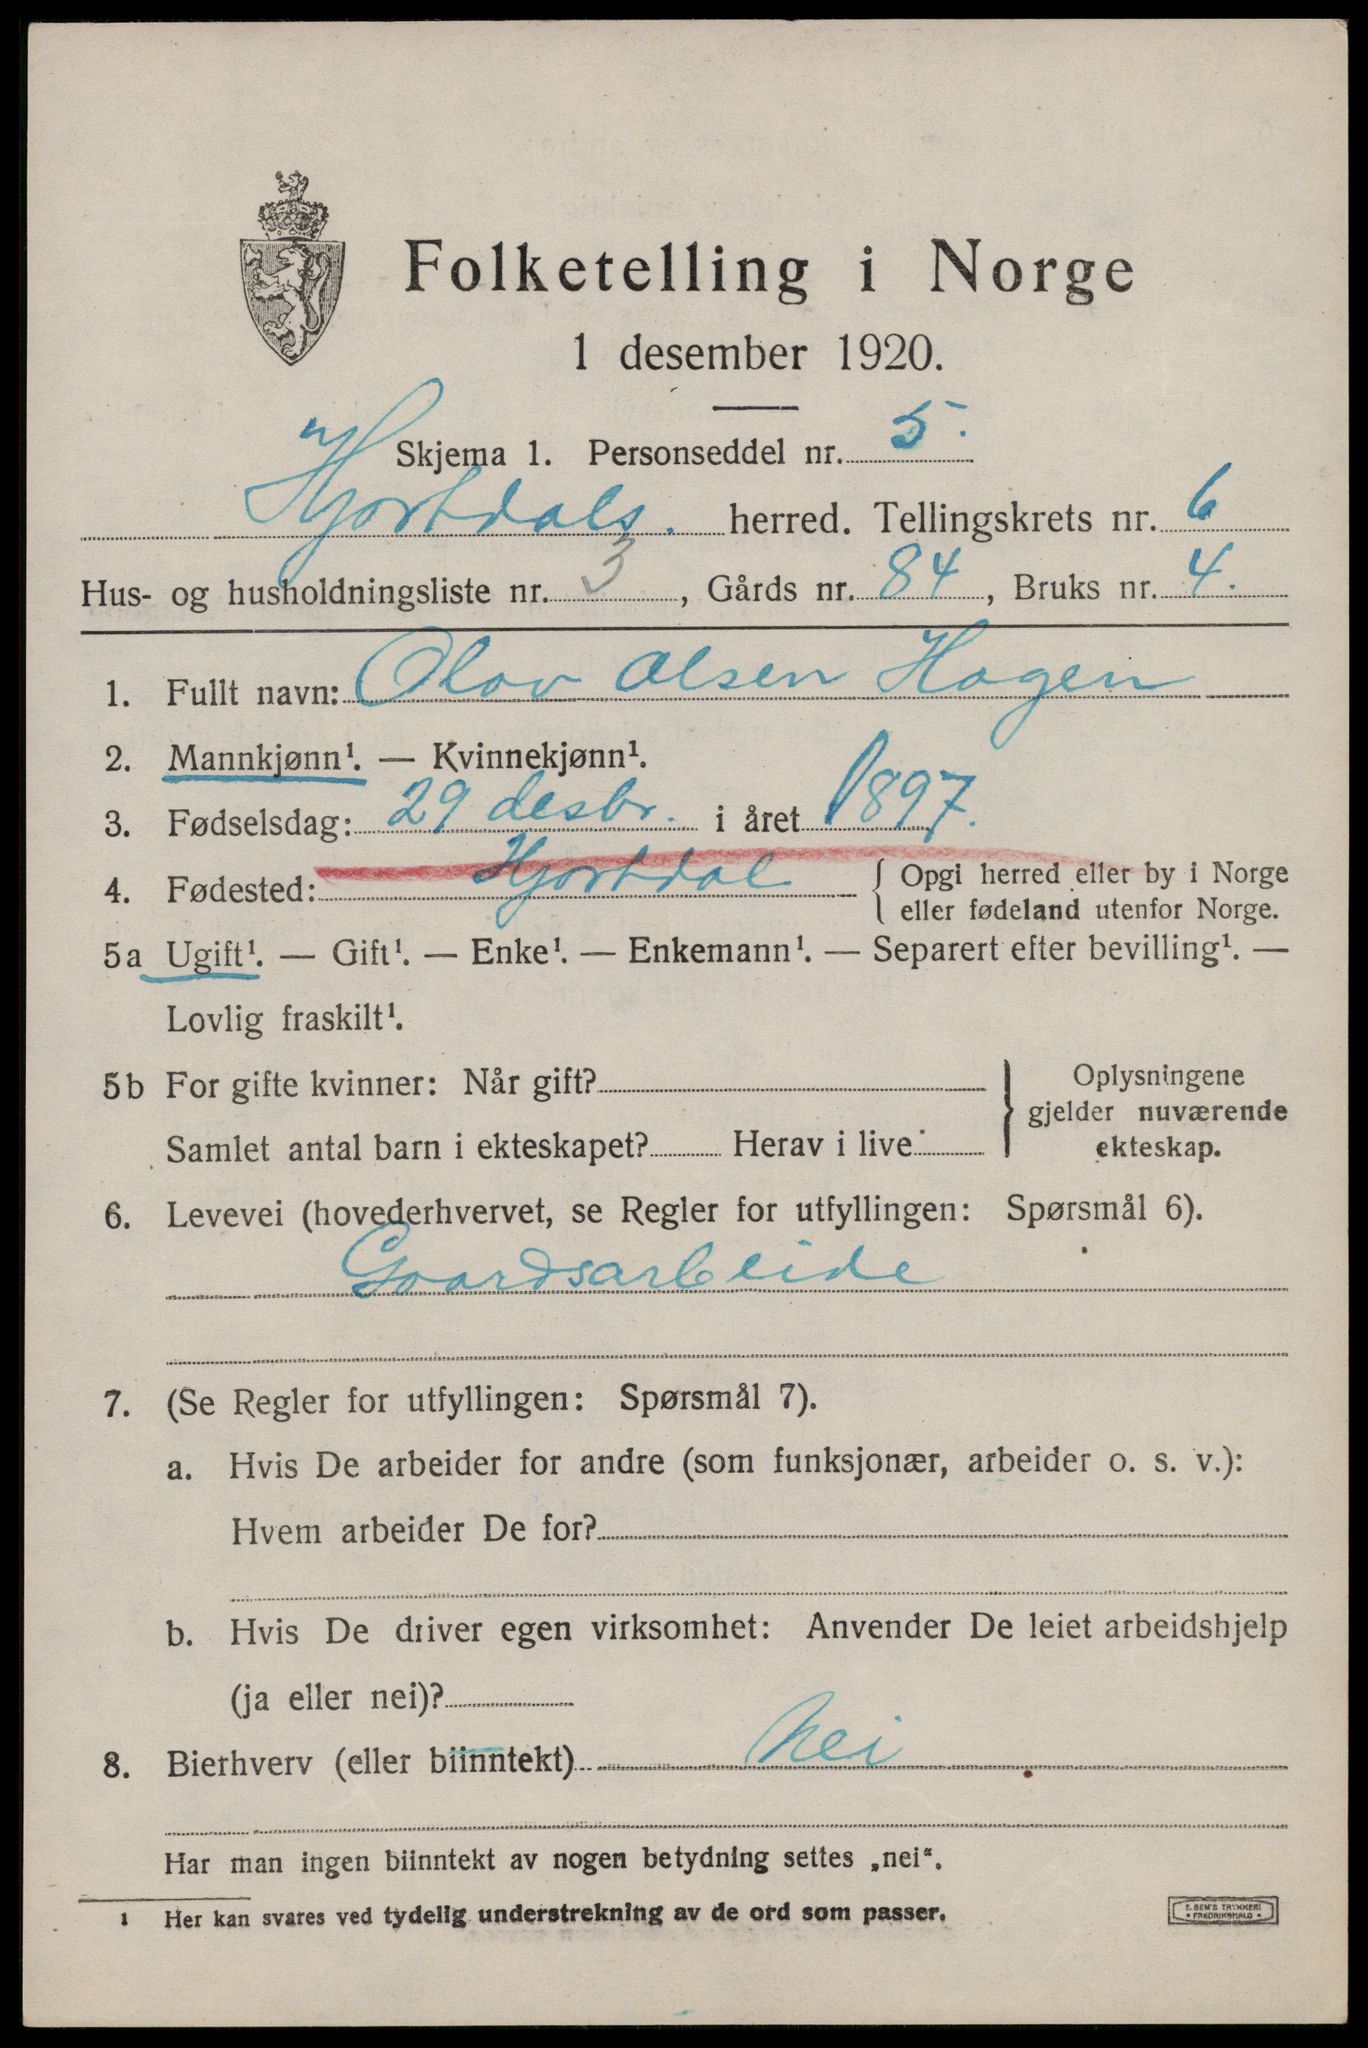 Folketelling i Norge
1 desember 1920.
Skjema 1. Personseddel nr. 5.
Hjortdals. herred. Tellingskrets nr. 6
Hus- og husholdningsliste nr. 3, Gårds nr. 84, Bruks nr. 4.
1. Fullt navn: Olav Olsen Hagen
2. Mannkjønn¹. — Kvinnekjønn¹.
3. Fødselsdag: 29 desbr. i året 1897.
4. Fødested: Hjortdal { Opgi herred eller by i Norge
eller fødeland utenfor Norge.
5a Ugift¹. — Gift¹. — Enke¹. — Enkemann¹. — Separert efter bevilling¹. —
Lovlig fraskilt¹.
5b For gifte kvinner: Når gift? } Oplysningene
gjelder nuværende
Samlet antal barn i ekteskapet? Herav i live ekteskap.
6. Levevei (hovederhvervet, se Regler for utfyllingen: Spørsmål 6).
Gaardsarbeide
7. (Se Regler for utfyllingen: Spørsmål 7).
a. Hvis De arbeider for andre (som funksjonær, arbeider o. s. v.):
Hvem arbeider De for?
b. Hvis De driver egen virksomhet: Anvender De leiet arbeidshjelp
(ja eller nei)?
8. Bierhverv (eller biinntekt) Nei
Har man ingen biinntekt av nogen betydning settes „nei“.
1 Her kan svares ved tydelig understrekning av de ord som passer.
E. SEM'S TRYKKERI
FREDRIKSHALD